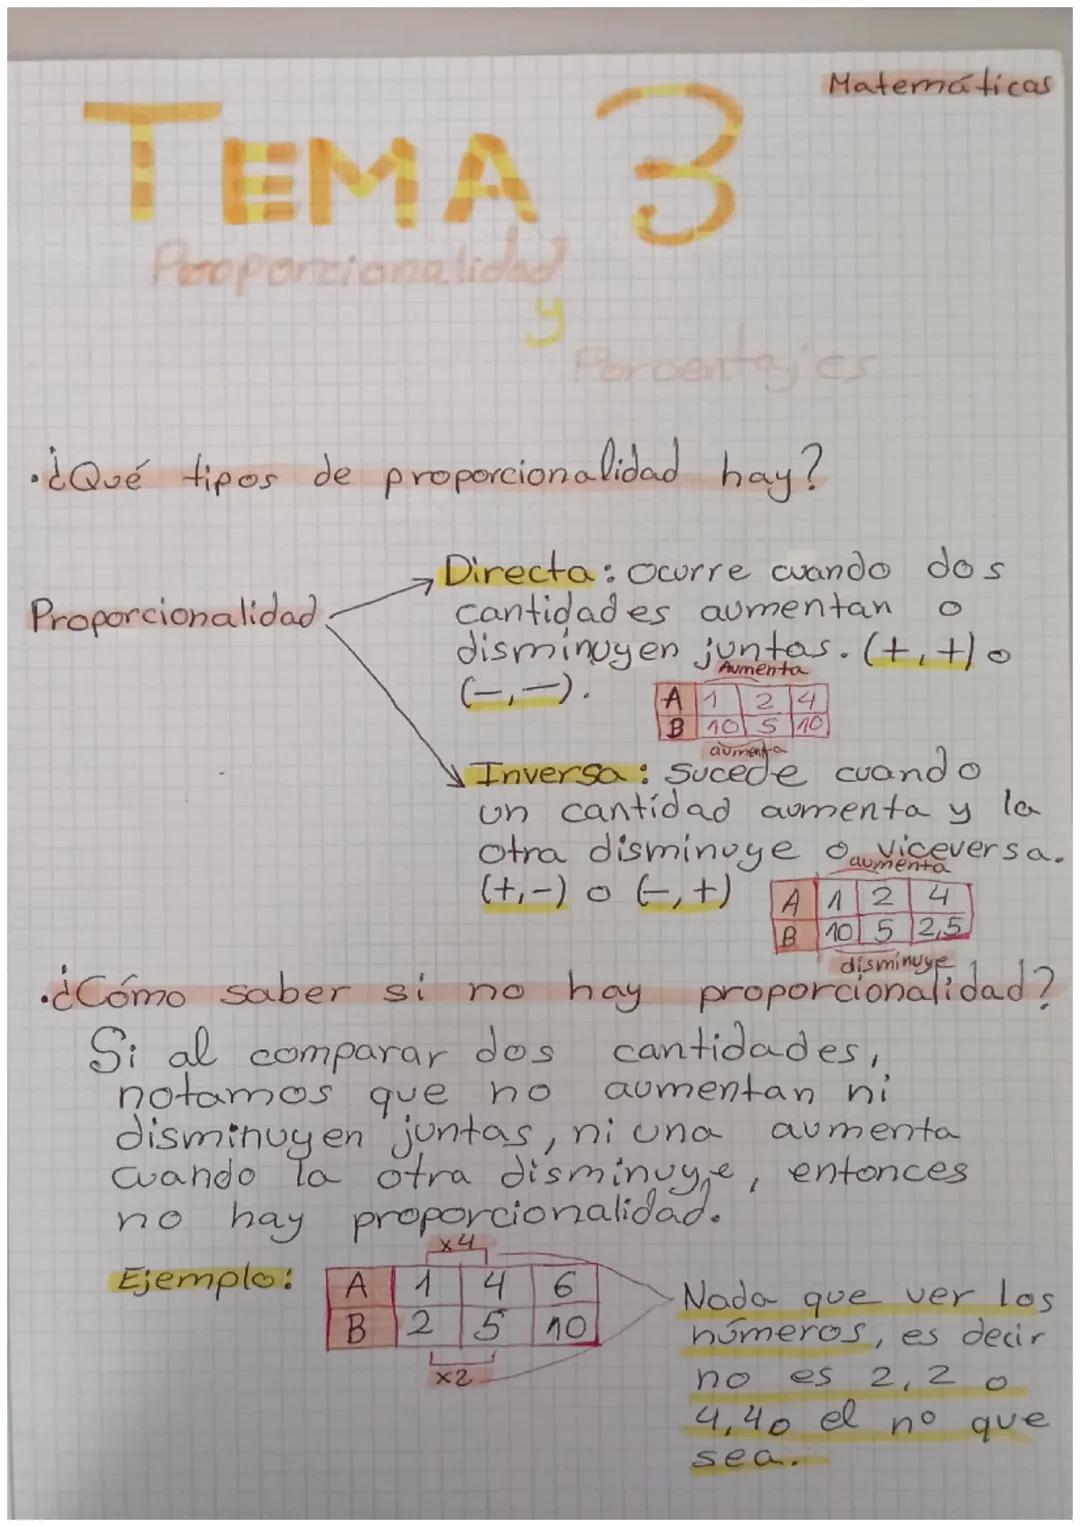 Matemáticas
TEMA 3
Proporcionalidad
y
Porcentajes
·¿Qué tipos de proporcionalidad hay?
Proporcionalidad
Directa: ocurre cuando dos
cantidades aumentan o
disminuyen juntas. (+,+) o
(-,-).
Aumenta
A 1 2 4
B 10 5 10
aumenta
Inversa: Sucede cuando
un cantidad aumenta y la
otra disminuye o viceversa.
(+,-) o (-,+)
aumenta
A 1 2 4
B 10 5 2,5
disminuye
·¿Cómo saber si no hay proporcionalidad?
Si al comparar dos cantidades,
notamos que no aumentan ni
disminuyen juntas, ni una aumenta
cuando la otra disminuye, entonces
no hay proporcionalidad.
Ejemplo:
x4
A 1 4 6
B 2 5 10
x2
Nada que ver los
números, es decir
no es 2,2 o
4,4 o el nº que
sea.